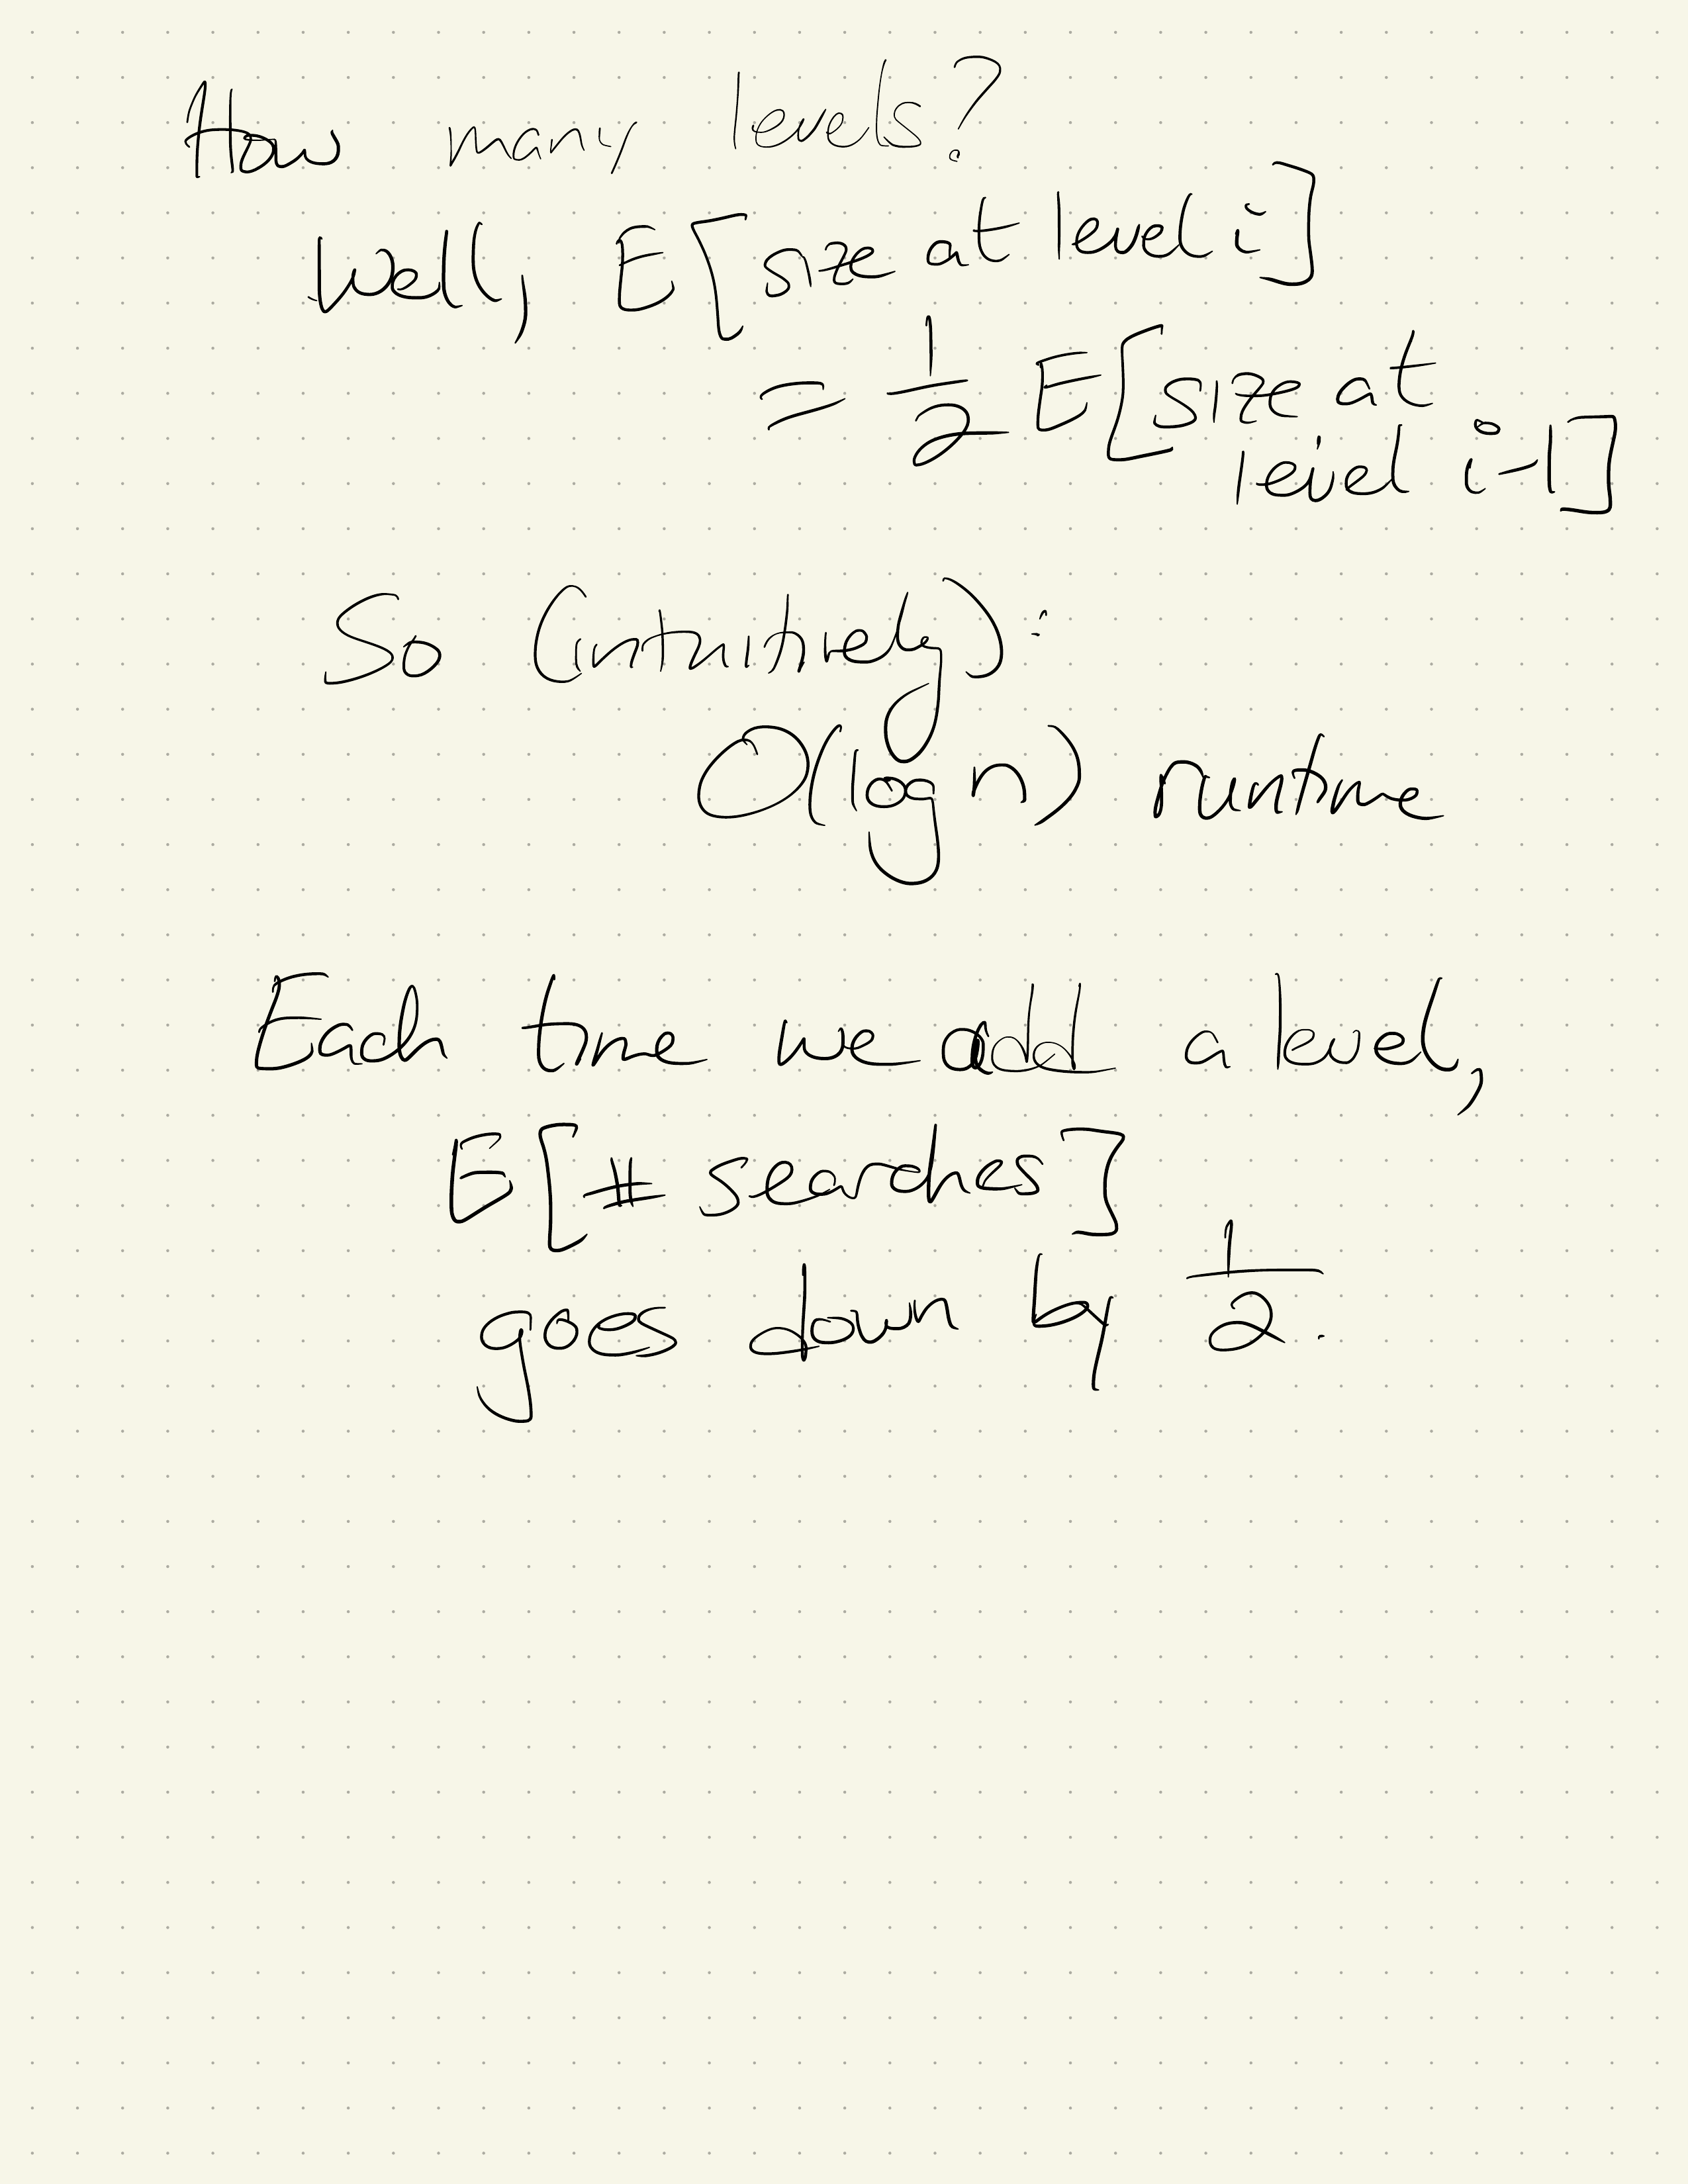 How many levels?
Well, E[size at level i]
= 1/2 E[size at
level i-1]
So (intuitively):
O(log n) runtime
Each time we add a level,
E[# searches]
goes down by 1/2.